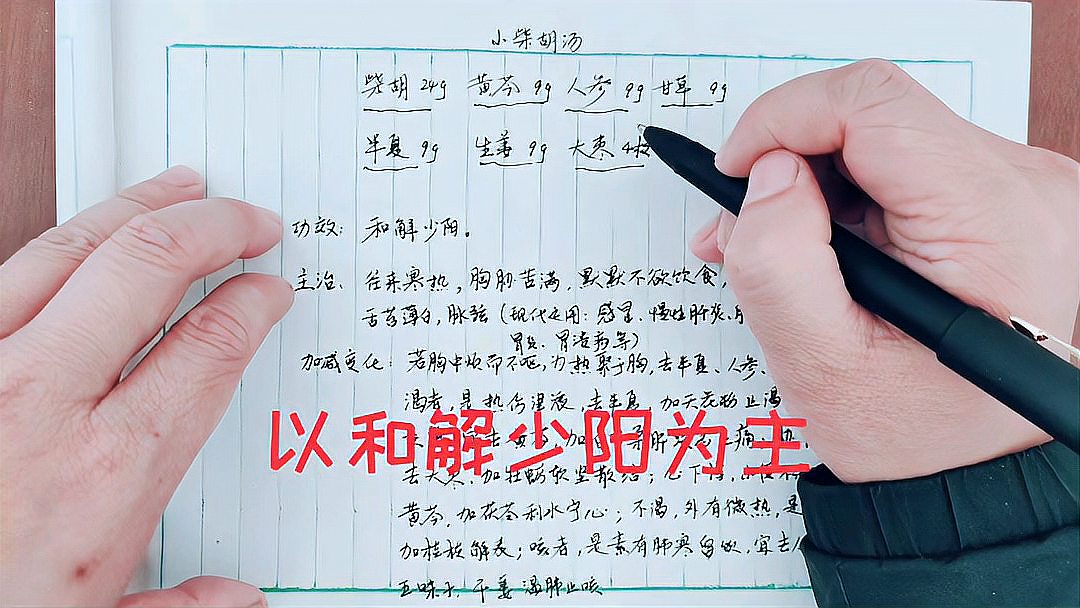 小柴胡汤
柴胡 24g 黄芩 9g 人参 9g 甘草 9g
半夏 9g 生姜 9g 大枣 4枚
功效：和解少阳。
主治、往来寒热，胸胁苦满，默默不欲饮食，
舌苔薄白，脉弦（现代运用：感冒、慢性肝炎、
胃炎、胃溃疡等）
加减变化：若胸中烦而不呕，为热聚于胸，去半夏、人参、
渴者，是热伤津液，去半夏，加天花粉止渴
以和解少阳为主
去大枣，加牡蛎软坚散结；心下悸，
黄芩，加茯苓利水宁心；不渴，外有微热，是
加桂枝解表；咳者，是素有肺寒留饮，宜去
五味子、干姜温肺止咳